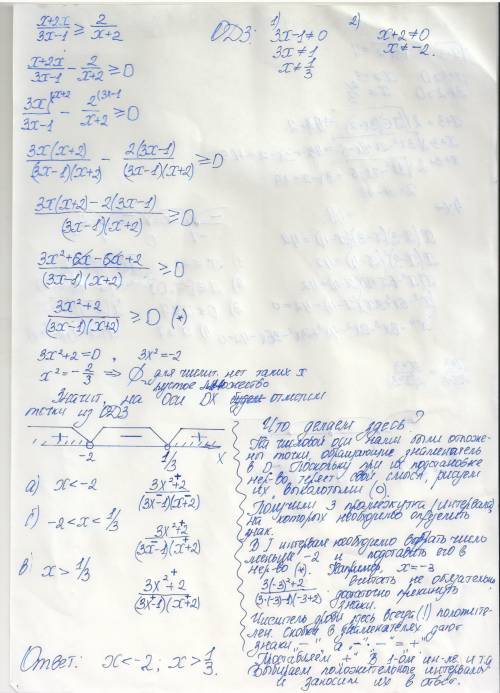 x+2x/3x-1 ≥ 2/x+2
ОДЗ: 1) 3x-1≠0
3x≠1
x≠1/3
2) x+2≠0
x≠-2.
x+2x/3x-1 - 2/x+2 ≥ 0
3x^(x+2/3x-1 - 2^(3x-1/x+2 ≥ 0
3x(x+2)/(3x-1)(x+2) - 2(3x-1)/(3x-1)(x+2) ≥ 0
3x(x+2)-2(3x-1)/(3x-1)(x+2) ≥ 0
3x²+6x-6x+2/(3x-1)(x+2) ≥ 0
3x²+2/(3x-1)(x+2) ≥ 0 (*)
3x²+2=0, 3x²=-2
x²=-2/3 ⇒ ∅ для числит. нет таких x
пустое множество
Значит, на оси OX отметки
точки из ОДЗ
+ - +
-2 1/3 x
а) x<-2 3x²+2/(3x-1)(x+2)
б) -2<x<1/3 3x²+2/(3x-1)(x+2)
в) x>1/3 3x²+2/(3x-1)(x+2)
Ответ: x<-2; x>1/3.
Что делаем здесь?
На числовой оси нами были отложе-
ны точки, обращающие знаменатель
в 0. Поскольку при их подстановке
нер-во теряет свой смысл, рисуем
их выколотыми (о).
Получили 3 промежутка (интервала)
на которых необходимо определить
знак.
В 1 интервале необходимо взять число
меньше -2 и подставить его в
нер-во (*). Например, x=-3
3(-3)²+2/(3·(-3)-1)(-3+2) считать не обязательно
достаточно прикинуть
знаки.
Числитель дроби здесь всегда(!) положите-
лен. Скобки в знаменателях дают
знаки "-", а "-"·"-"="+"
Проставляем "+" в 1-ом ин-ле и т.д.
Выбираем положительные интервалы
и заносим их в ответ.